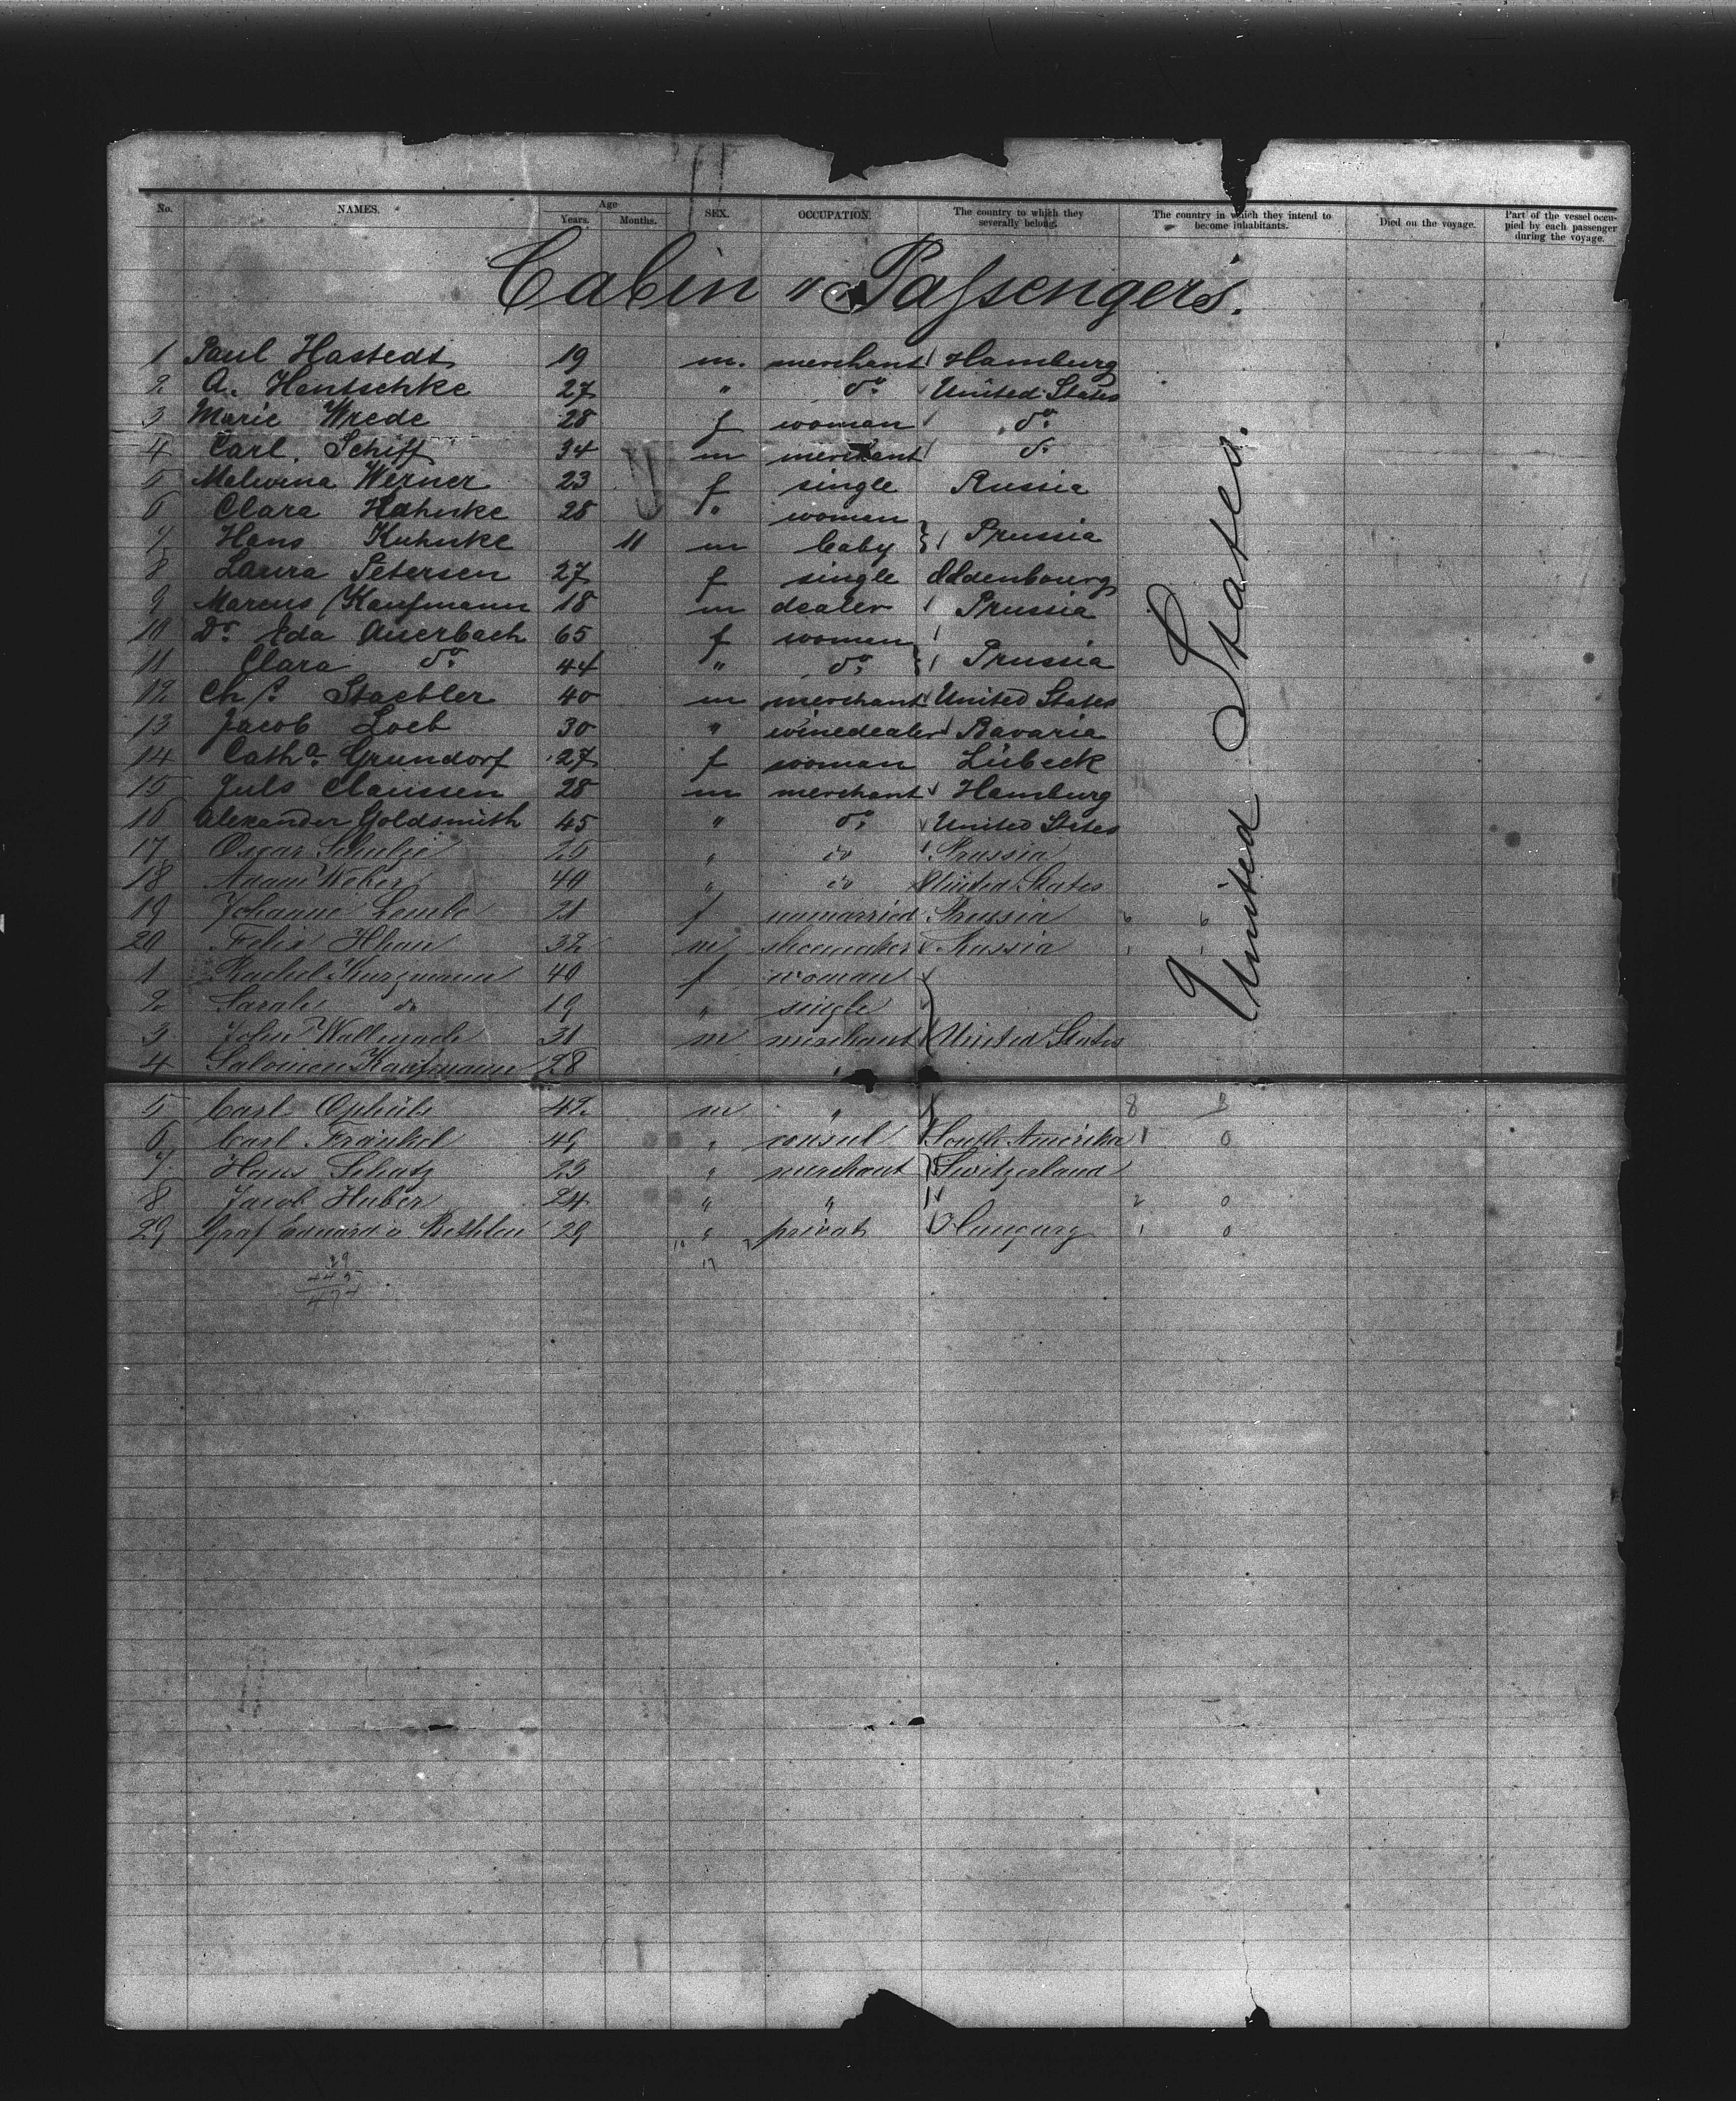 No. NAMES. Age Years. Months. SEX. OCCUPATION. The country to which they severally belong. The country in which they intend to become inhabitants. Died on the voyage. Part of the vessel occupied by each passenger during the voyage.
Cabin " Passengers.
1 Paul Hastedt 19 m. merchant Hamburg
2 A. Hentschke 27 " do. United States
3 Marie Wrede 28 f woman do.
4 Carl. Schiff 34 m merchant do.
5 Malwina Werner 23 f single Russia
6 Clara Hahnke 28 " women
7 Hans Kuhnke 11 m baby } Prussia
8 Laura Petersen 27 f single Oldenbourg
9 Marcus Kaufmann 18 m dealer Prussia
10 Do. Ida Auerbach 65 f women
11 Clara do. 44 " do. } Prussia
12 Chs. Staebler 40 m merchant United States
13 Jacob Loeb 30 " winedealer Bavaria
14 Catha. Grundorf 27 f woman Lübeck
15 Juls Claussen 28 m merchant Hamburg
16 Alexander Goldsmith 45 " do. United States
17 Oscar Schulze 25 " do Prussia
18 Adam Weber 44 " do United States
19 Johanne Lembe 21 f unmarried Prussia 6 6
20 Felix 32 m shoemaker Russia 1 1
1 Rachel Kurzmann 40 f woman
2 Sarah do 19 " single
3 John 31 m merchant United States
4 Salomon Kaufmann 28 "
United States.
5 Carl 42 m " 8 3
6 Carl Fränkel 49 " consul South Amerika 1 0
7 Hans Schatz 23 " merchant Switzerland
8 Jacob Huber 24 " " 2 0
29 Graf Eduard v Bethlen 29 " privat Hungary 1 0
29 17
445
474